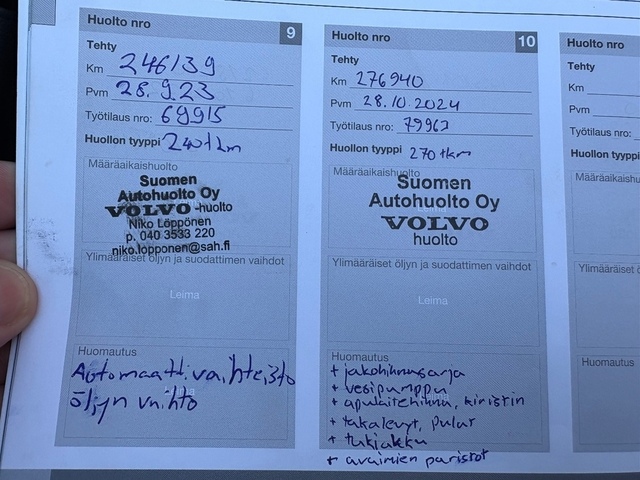 Huolto nro 9
Tehty
Km 246139
Pvm 28.9.23
Työtilaus nro: 69915
Huollon tyyppi 240tkm
Määräaikaishuolto
Suomen
Autohuolto Oy
VOLVO-huolto
Niko Löppönen
p. 040 3533 220
niko.lopponen@sah.fi
Ylimääräiset öljyn ja suodattimen vaihdot
Leima
Huomautus
Automaattivaihteisto
öljyn vaihto
Huolto nro 10
Tehty
Km 276940
Pvm 28.10.2024
Työtilaus nro: 79963
Huollon tyyppi 270tkm
Määräaikaishuolto
Suomen
Autohuolto Oy
VOLVO
huolto
Ylimääräiset öljyn ja suodattimen vaihdot
Leima
Huomautus
+ jakohihnasarja
+ vesipumppu
+ apulaitehihna, kiristin
+ takalevyt, palat
+ tukijakku
+ avaimien paristot
Huolto nro
Tehty
Km
Pvm
Työtilaus nro:
Huollon tyyppi
Määräaikaishu
Ylimääräiset ö
Huomautus